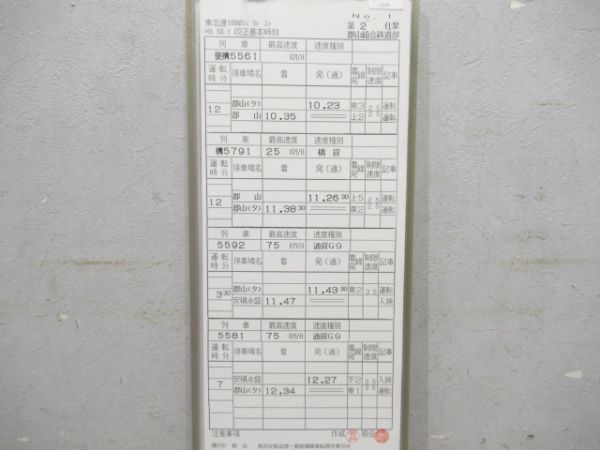 No. 1
東北達10001(9/3)
H9.10.1 改正基本時刻
第 2 仕業
郡山総合鉄道部
列 車 最高速度 速度種別
便構5561 KM/H
運転時分 停車場名 着 発(通) 着発線 制限速度 記事
12 郡山(タ) 10.23 東3 運転
郡 山 10.35 上2 運転
列 車 最高速度 速度種別
構5791 25 KM/H 構 貨
運転時分 停車場名 着 発(通) 着発線 制限速度 記事
12 郡 山 11.26 30 上5 運転
郡山(タ) 11.38 30 東2 運転
列 車 最高速度 速度種別
5592 75 KM/H 通貨G9
運転時分 停車場名 着 発(通) 着発線 制限速度 記事
3 30 郡山(タ) 11.43 30 東2 運転
安積永盛 11.47 入換
列 車 最高速度 速度種別
5581 75 KM/H 通貨G9
運転時分 停車場名 着 発(通) 着発線 制限速度 記事
7 安積永盛 12.27 下2 入換
郡山(タ) 12.34 東1 運転
注意事項 作成 照合